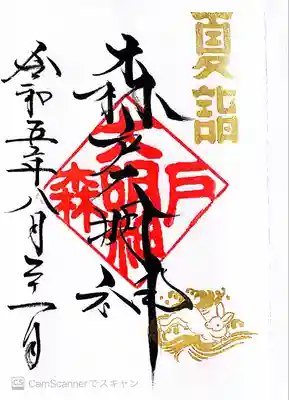 夏詣
森戸大明神
森戸大明神
令和五年八月
CamScannerでスキャン